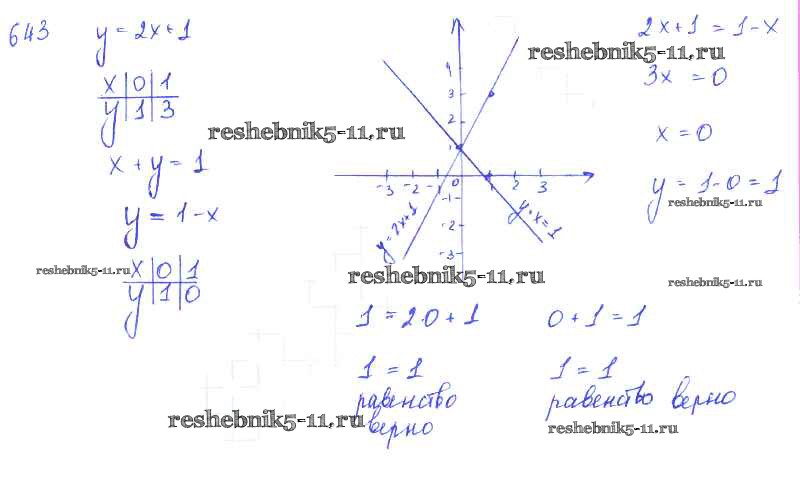 643
y = 2x+1
x | 0 | 1
y | 1 | 3
x + y = 1
y = 1-x
x | 0 | 1
y | 1 | 0
4
3
2
1
-3 -2 -1 0 1 2 3
-1
-2
-3
y = 2x+1
y+x=1
2x+1 = 1-x
3x = 0
x = 0
y = 1-0 = 1
1 = 2·0 + 1
1 = 1
равенство
верно
0 + 1 = 1
1 = 1
равенство верно
reshebnik5-11.ru
reshebnik5-11.ru
reshebnik5-11.ru
reshebnik5-11.ru
reshebnik5-11.ru
reshebnik5-11.ru
reshebnik5-11.ru
reshebnik5-11.ru